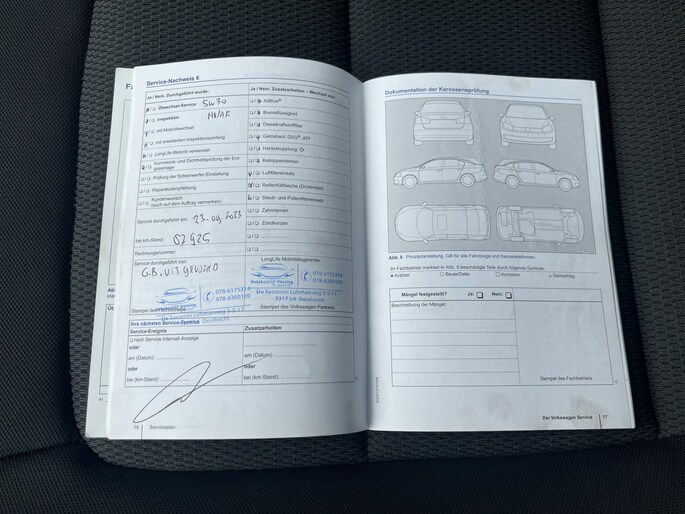 Service-Nachweis 6
Ja / Nein. Durchgeführt wurde:
Ölwechsel-Service 5W30
Inspektion
mit Mobilitätswechsel
mit erweitertem Inspektionsumfang
LongLife Motoröl verwendet
Korrosions- und Dichtheitsprüfung der Erdgasanlage
Prüfung der Scheinwerfer-Einstellung
Reparaturempfehlung
Kundenwunsch
(siehe auch Auftrag vermerken)
Service durchgeführt am:
bei km-Stand:
Rechnungsnummer:
Service durchgeführt von:
078-6175314
078-6300100
Stempel des Fachbetriebs
Ja / Nein. Zusatzarbeiten – Wechsel von:
AdBlue®
Bremsflüssigkeit
Dieselkraftstofffilter
Getriebeöl: DSG®, ATF
Haldexkupplung: Öl
Keilrippenriemen
Luftfiltereinsatz
Reifenfüllflasche (Dichtmittel)
Staub- und Pollenfiltereinsatz
Zahnriemen
Zündkerzen
LongLife Mobilitätsgarantie:
078-6175314
078-6300100
3317 LA Dordrecht
Stempel des Volkswagen Partners
Ihre nächsten Service-Termine
Service-Ereignis
Zusatzarbeiten
nach Service-Intervall-Anzeige
oder
am (Datum):
oder
bei (km-Stand):
am (Datum):
oder
bei (km-Stand):
16
Serviceplan
Dokumentation der Karosserieprüfung
Abb. 6 Prinzipdarstellung. Gilt für alle Fahrzeuge und Karosserieformen.
Im Fachbetrieb markiert in Abb. 6 beschädigte Teile durch folgende Symbole:
Kratzer
Beule/Delle
Korrosion
Steinschlag
Mängel festgestellt? Ja: Nein:
Beschreibung der Mängel:
Stempel des Fachbetriebs
Der Volkswagen Service 17